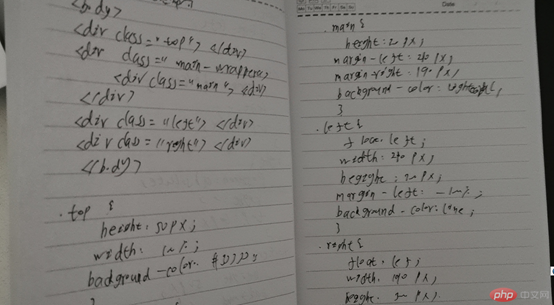 <body>
<div class="top"> </div>
<div class="main-wrapper">
<div class="main"> </div>
</div>
<div class="left"> </div>
<div class="right"> </div>
</body>
.top {
height: 50px;
width:
background-color:
.main {
height:
margin-left: 210px;
margin-right: 190px;
background-color:
}
.left {
float: left;
width: 210px;
height:
margin-left:
background-color: lime;
}
.right {
float: left;
width: 190px;
height:
Date
php 中文网